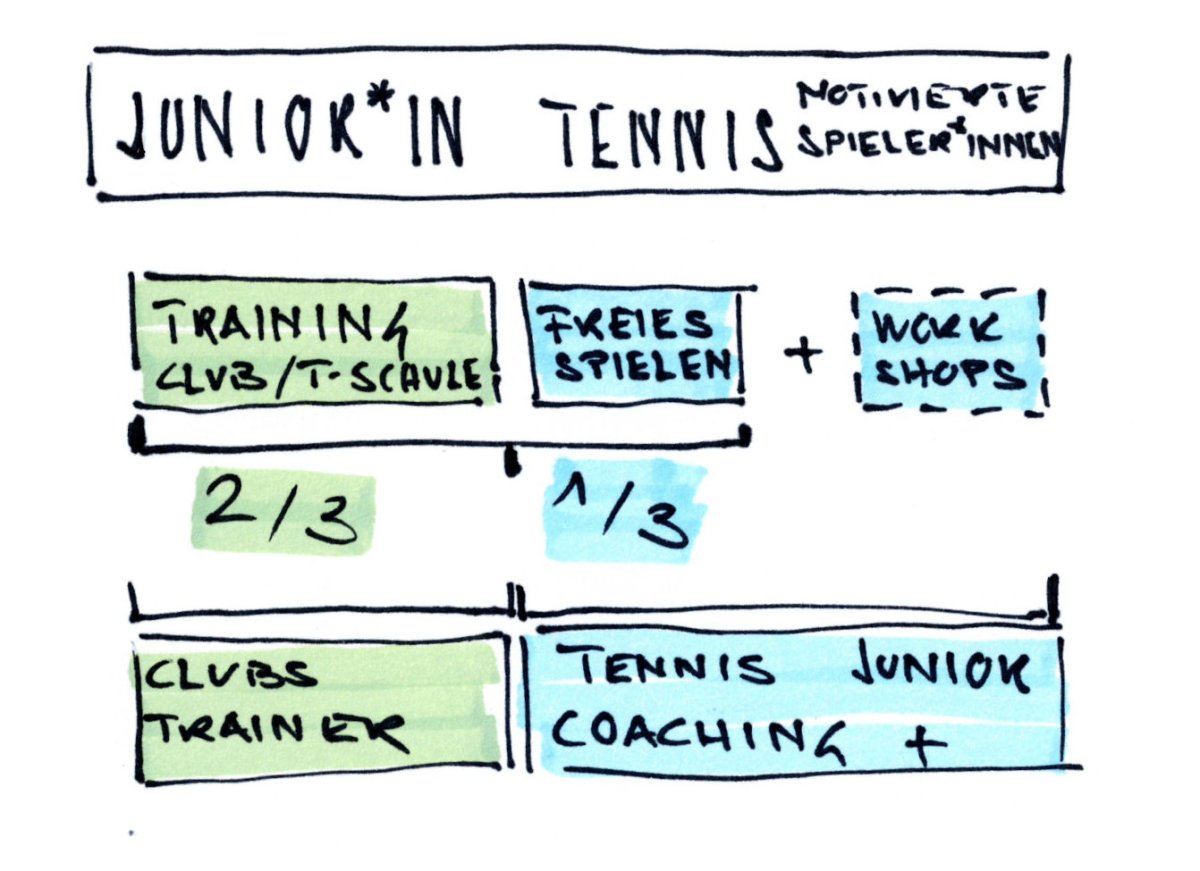 JUNIOR*IN TENNIS
MOTIVIERTE
SPIELER*INNEN
TRAINING
CLUB/T-SCHULE
FREIES
SPIELEN
+
WORK
SHOPS
2/3
1/3
CLUBS
TRAINER
TENNIS JUNIOR
COACHING +